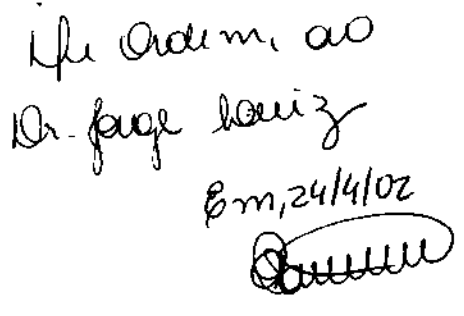 De Ordem, ao
Dr. Jorge Louiz
Em, 24/4/02